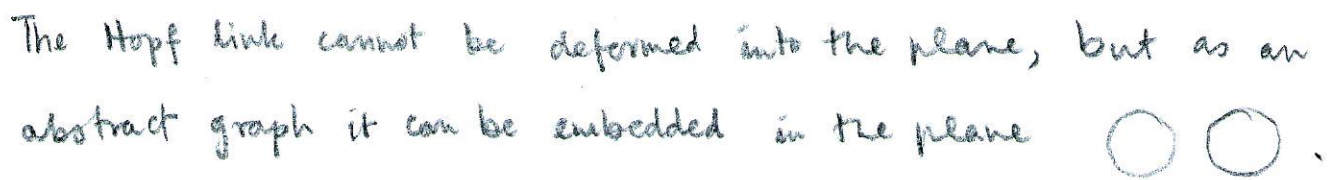 The Hopf link cannot be deformed into the plane, but as an
abstract graph it can be embedded in the plane .